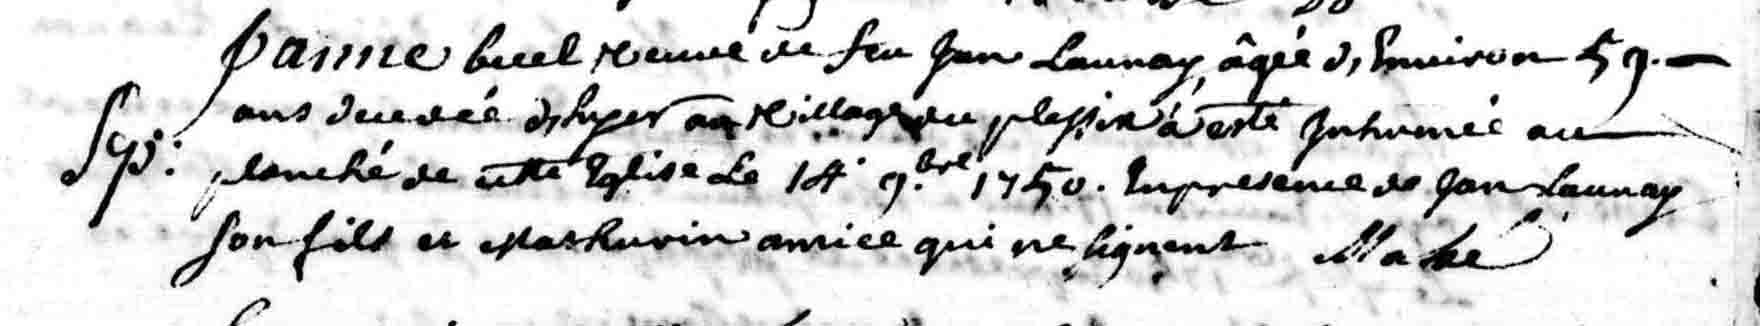 Janne buel veuve de feu Jan Launay, âgée d'Environ 59. —
ans decedée d'hyer au village du plessix a esté Inhumée au
Sep. planché de cette Eglise Le 14 9.bre 1750. En presence de Jan Launay
son fils et Mathurin amice qui ne signent Mahé